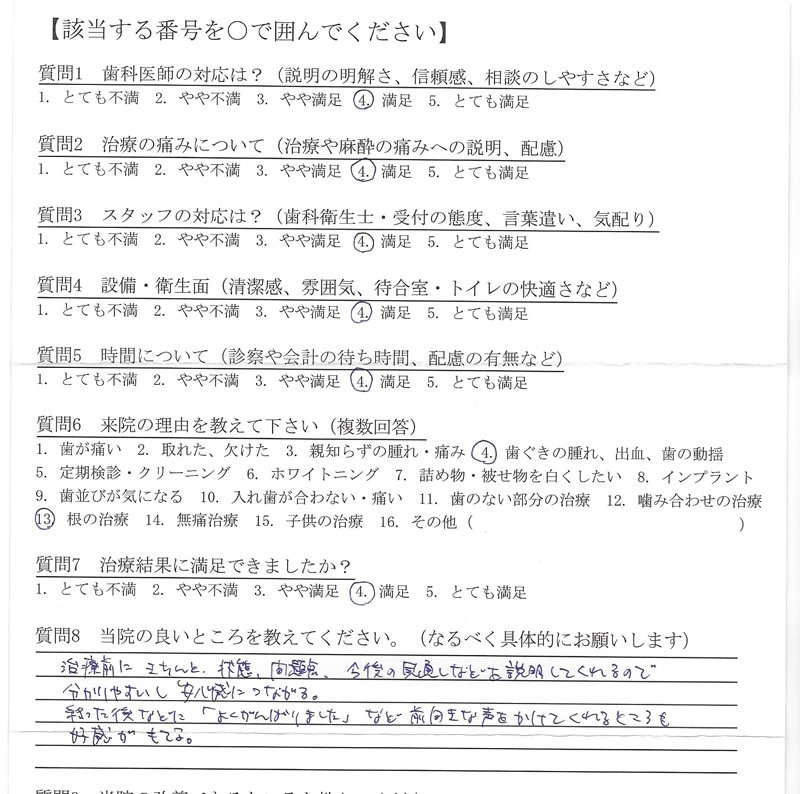 【該当する番号を〇で囲んでください】
質問1　歯科医師の対応は？（説明の明解さ、信頼感、相談のしやすさなど）
1. とても不満　2. やや不満　3. やや満足　4. 満足　5. とても満足
質問2　治療の痛みについて（治療や麻酔の痛みへの説明、配慮）
1. とても不満　2. やや不満　3. やや満足　4. 満足　5. とても満足
質問3　スタッフの対応は？（歯科衛生士・受付の態度、言葉遣い、気配り）
1. とても不満　2. やや不満　3. やや満足　4. 満足　5. とても満足
質問4　設備・衛生面（清潔感、雰囲気、待合室・トイレの快適さなど）
1. とても不満　2. やや不満　3. やや満足　4. 満足　5. とても満足
質問5　時間について（診察や会計の待ち時間、配慮の有無など）
1. とても不満　2. やや不満　3. やや満足　4. 満足　5. とても満足
質問6　来院の理由を教えて下さい（複数回答）
1. 歯が痛い　2. 取れた、欠けた　3. 親知らずの腫れ・痛み　4. 歯ぐきの腫れ、出血、歯の動揺
5. 定期検診・クリーニング　6. ホワイトニング　7. 詰め物・被せ物を白くしたい　8. インプラント
9. 歯並びが気になる　10. 入れ歯が合わない・痛い　11. 歯のない部分の治療　12. 噛み合わせの治療
13. 根の治療　14. 無痛治療　15. 子供の治療　16. その他（　　　）
質問7　治療結果に満足できましたか？
1. とても不満　2. やや不満　3. やや満足　4. 満足　5. とても満足
質問8　当院の良いところを教えてください。（なるべく具体的にお願いします）
治療前にきちんと、状態、問題点、今後の見通しなどお説明してくれるので
分かりやすいし安心感につながる。
終った後などに「よくがんばりました」など前向きな声をかけてくれるところも
好感がもてる。